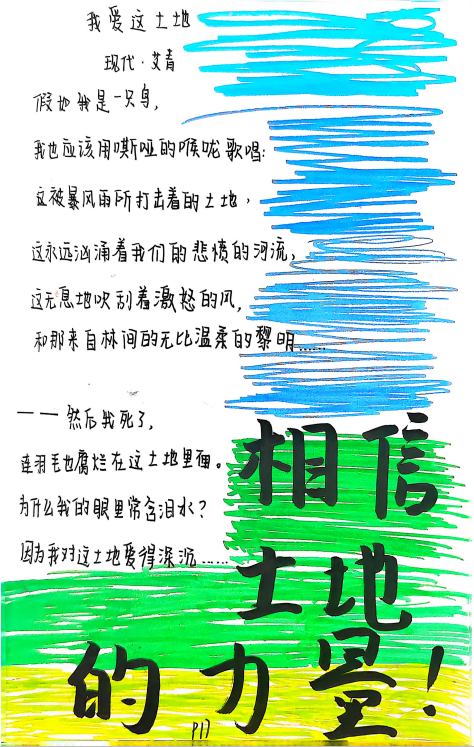 我爱这土地
现代·艾青
假如我是一只鸟，
我也应该用嘶哑的喉咙歌唱：
这被暴风雨所打击着的土地，
这永远汹涌着我们的悲愤的河流，
这无息地吹刮着激怒的风，
和那来自林间的无比温柔的黎明……
——然后我死了，
连羽毛也腐烂在这土地里面。
为什么我的眼里常含泪水？
因为我对这土地爱得深沉……
相信
土地
的力量！
P17